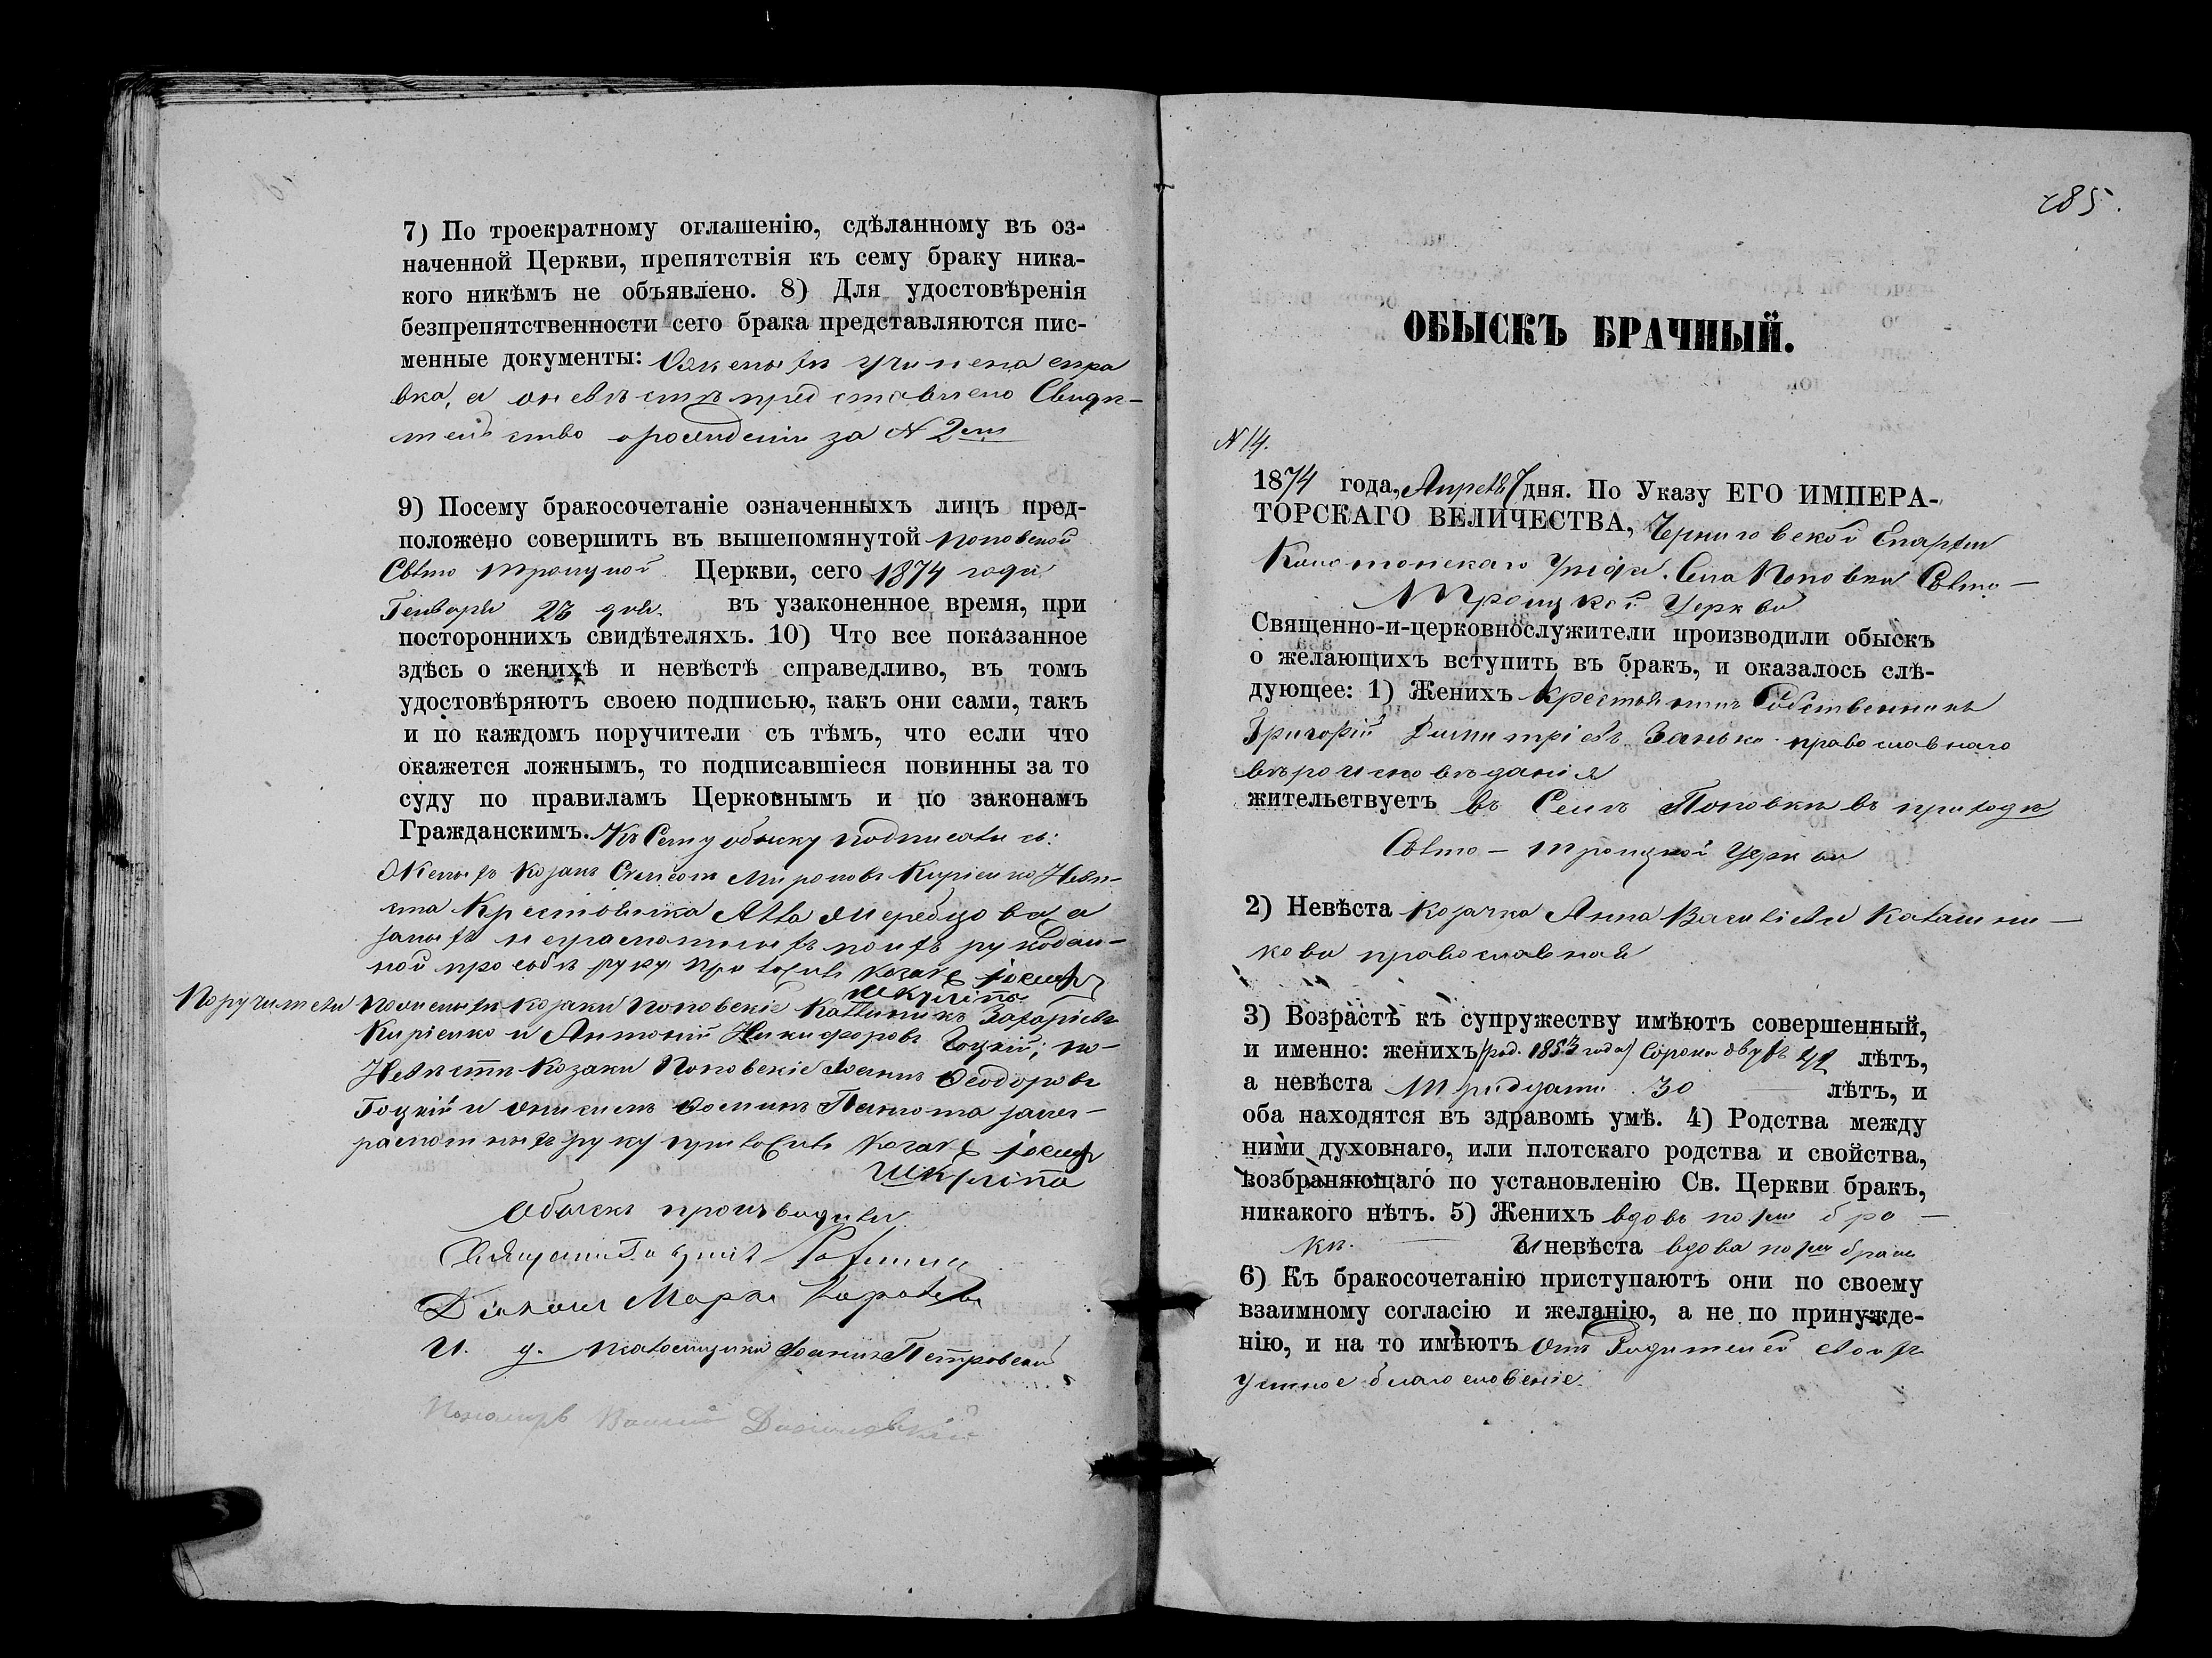 7) По троекратному оглашенію, сдѣланному въ оз-
наченной Церкви, препятствія къ сему браку ника-
кого никѣмъ не объявлено. 8) Для удостовѣренія
безпрепятственности сего брака представляются пис-
менные документы: О женихѣ учинена спра
вка, а о невѣстѣ представлено Свидѣ-
тельство о рожденіи за № 2м
9) Посему бракосочетаніе означенныхъ лицъ пред-
положено совершить въ вышепомянутой Поповской
Свято Троицкой Церкви, сего 1874 года
Генваря 23 дня въ узаконенное время, при
постороннихъ свидѣтеляхъ. 10) Что все показанное
здѣсь о женихѣ и невѣстѣ справедливо, въ томъ
удостовѣряютъ своею подписью, какъ они сами, такъ
и по каждомъ поручители съ тѣмъ, что если что
окажется ложнымъ, то подписавшіеся повинны за то
суду по правиламъ Церковнымъ и по законамъ
Гражданскимъ. Къ Сему обыску подписались:
Женихъ козакъ Мироновъ Кирієнко Невѣ-
ста Крестьянка а
за ихъ неграмотныхъ по ихъ рукодан-
ной просьбѣ руку приложилъ козакъ Іосифъ
Шкуліпа
Поручители по женихѣ козаки Поповскіе Калиникъ Захаріевъ
Кирієнко и Антоній Никифоровъ Гоцкій; по
Невѣстѣ Козаки Поповскіе Іоаннъ Феодоровъ
Гоцкій и за нег-
рамотныхъ руку приложилъ козакъ Іосифъ
Шкуліпа
Обыскъ производили
Священникъ
Діаконъ Марко
И. д. псаломщика Іоаннъ Петровскій
Пономарь
185.
ОБЫСКЪ БРАЧНЫЙ.
№ 14.
1874 года, Апреля 7 дня. По Указу ЕГО ИМПЕРА-
ТОРСКАГО ВЕЛИЧЕСТВА, Черниговской Епархіи
Конотопскаго Уѣзда. Села Поповки Свято-
Троицкой Церкви
Священно-и-церковнослужители производили обыскъ
о желающихъ вступить въ бракъ, и оказалось слѣ-
дующее: 1) Женихъ Крестьянинъ Собственникъ
Григорій Димитріевъ Занько православнаго
вѣроисповѣданія
жительствуетъ въ Селѣ Поповкѣ въ приходѣ
Свято-Троицкой Церкви
2) Невѣста козачка Анна Василіева
кова православная
3) Возрастъ къ супружеству имѣютъ совершенный,
и именно: женихъ (род. года) Сорока двухъ 42 лѣтъ,
а невѣста Тридцати 30 лѣтъ, и
оба находятся въ здравомъ умѣ. 4) Родства между
ними духовнаго, или плотскаго родства и свойства,
возбраняющаго по установленію Св. Церкви бракъ,
никакого нѣтъ. 5) Женихъ вдовъ по 1м бра-
кѣ. а невѣста вдова по 1м бракѣ
6) Къ бракосочетанію приступаютъ они по своему
взаимному согласію и желанію, а не по принужде-
нію, и на то имѣютъ отъ Родителей своихъ
устное благословеніе.